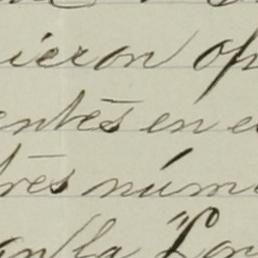 ieron op
entes en e
tres núm
an la Lor